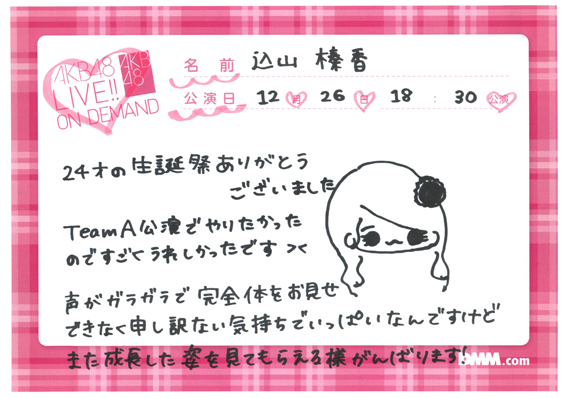 AKB48
LIVE!!
ON DEMAND
AKB
48
名前 込山榛香
公演日 12月26日 18:30公演
24才の生誕祭ありがとう
ございました
TeamA公演でやりたかった
のですごくうれしかったです ><
声がガラガラで完全体をお見せ
できなく申し訳ない気持ちでいっぱいなんですけど
また成長した姿を見てもらえる様がんばります!
DMM.com